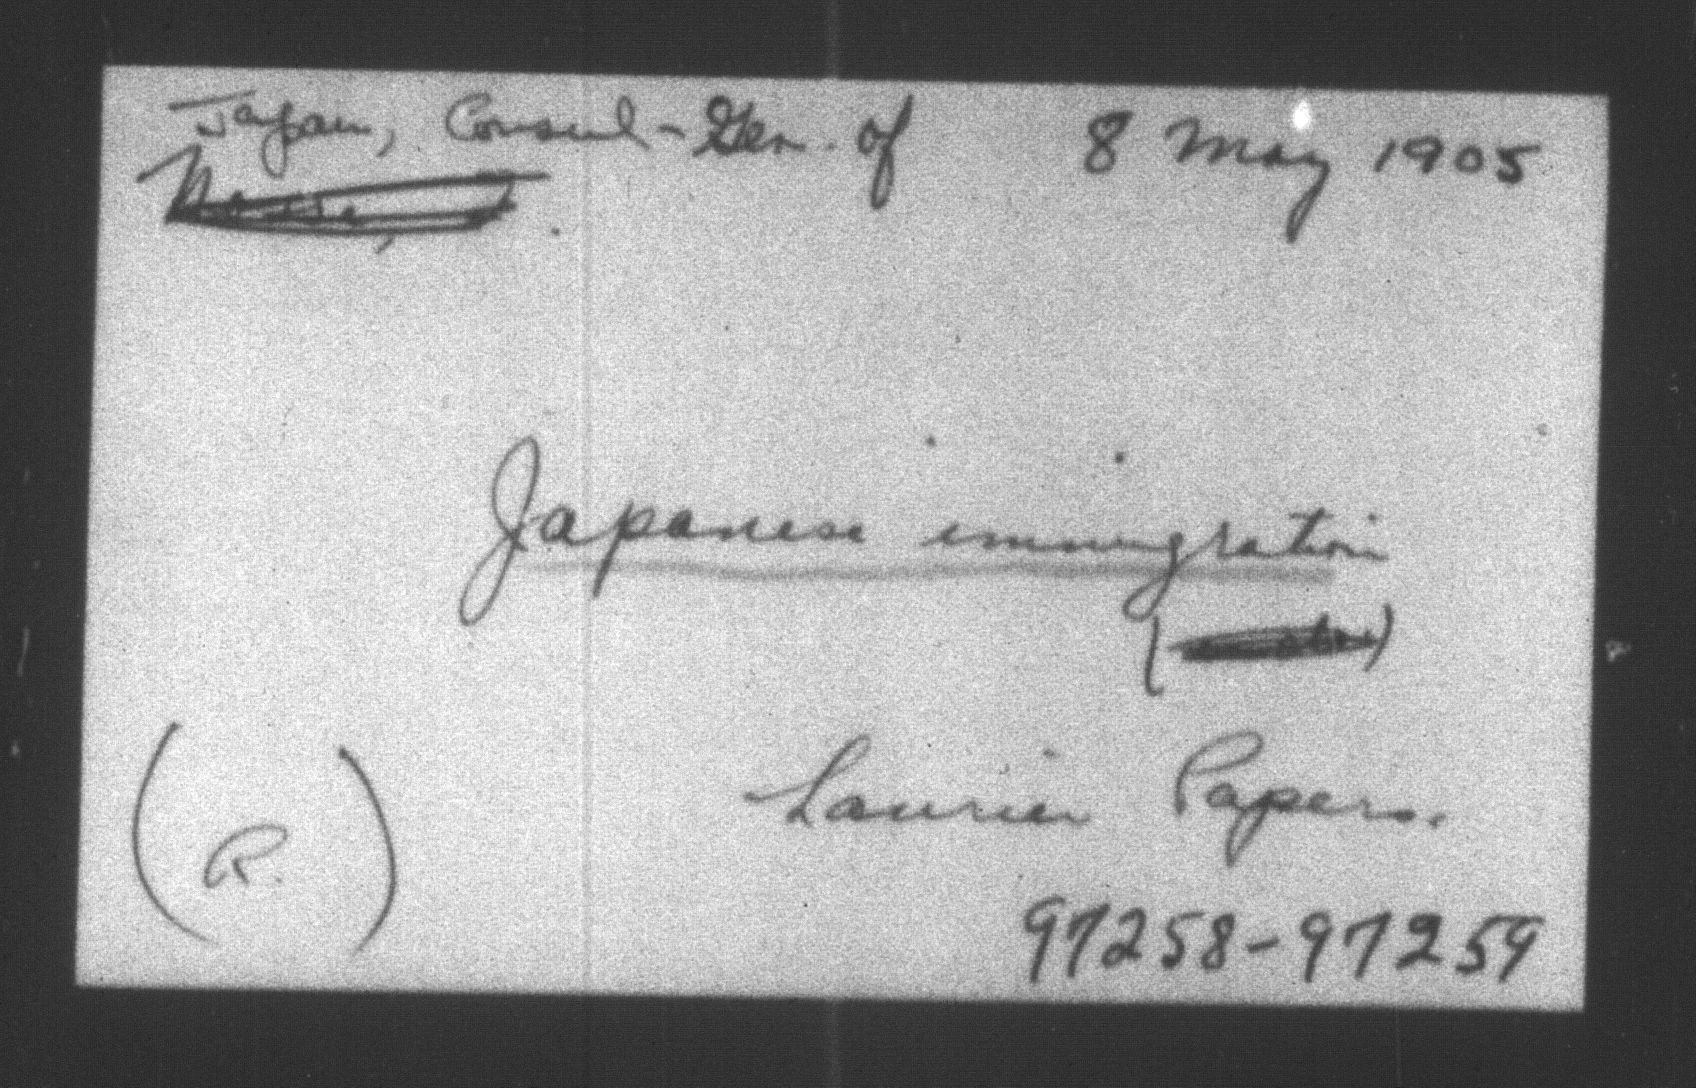 Japan, Consul-Gen. of 8 May 1905
Japanese immigration
Laurier Papers.
(R.)
97258-97259